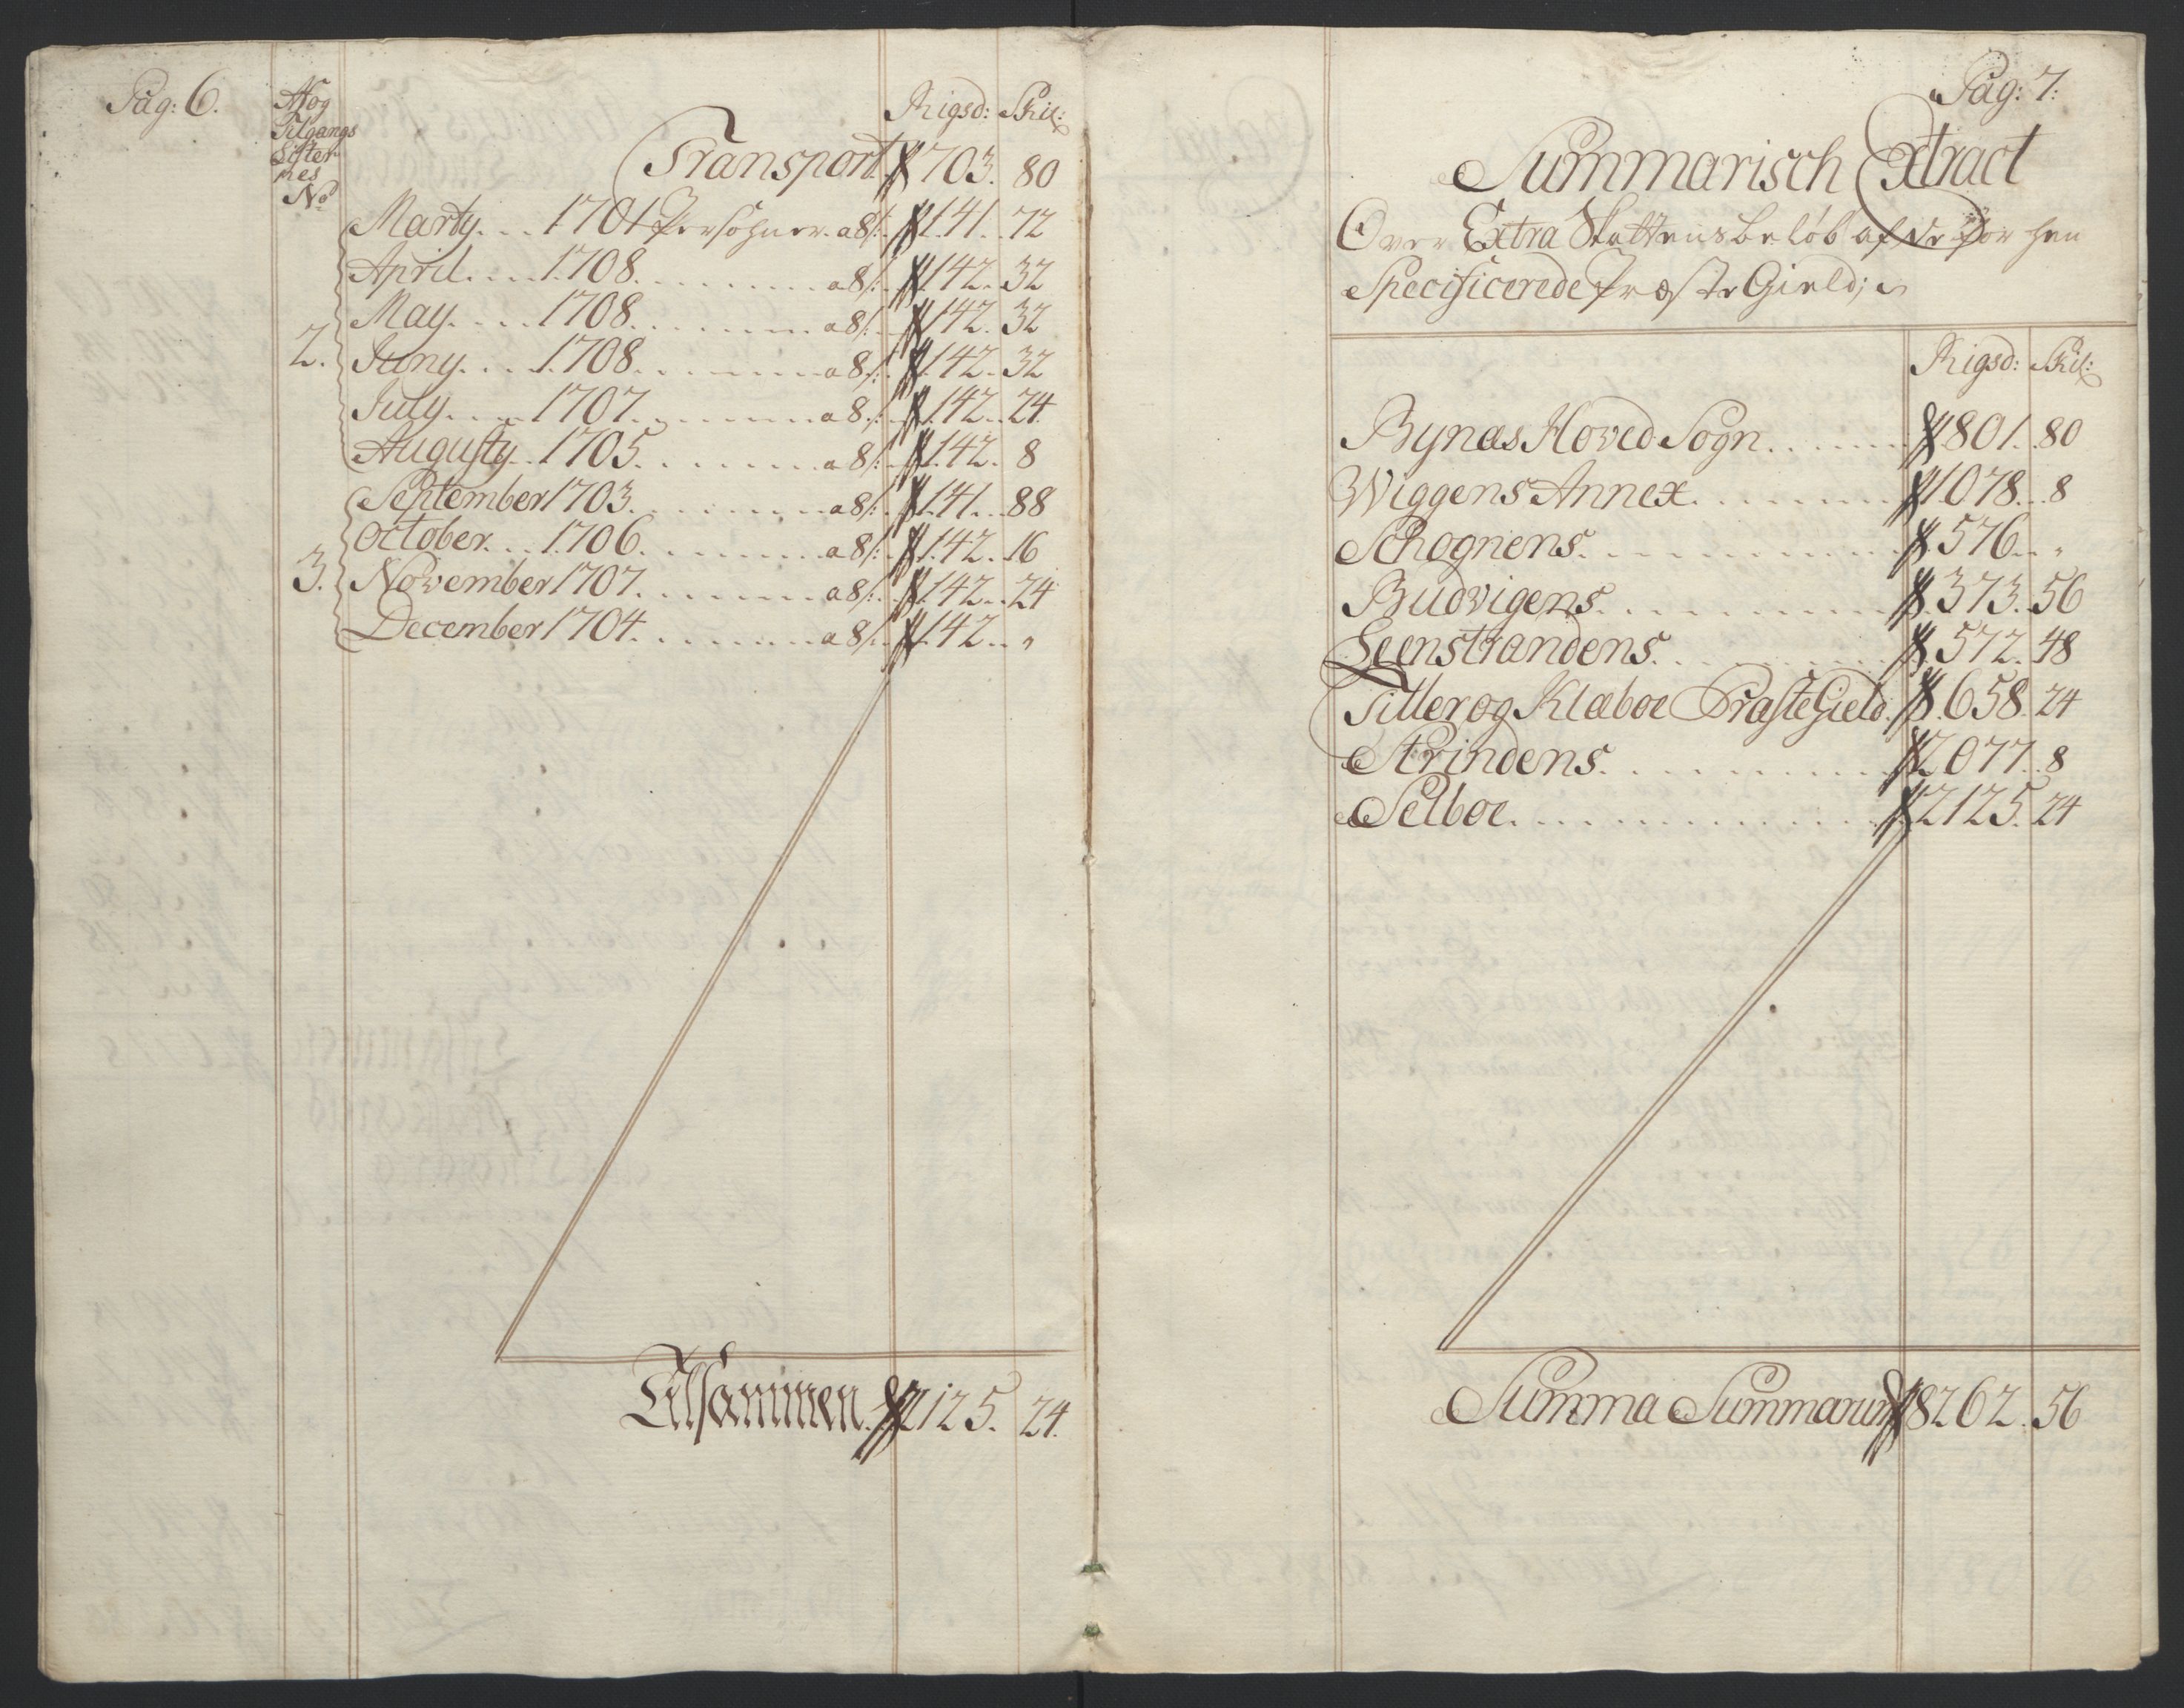 Pag: 6.
Af og
Tilgangs
Lister
nes
No
Rigsd: Skil:
Transport 703. 80
Marty. . . 1701 Persohner. a 8 s: . 141. . 72
April. . . . 1708. . . . . . . . . a 8 s: . 142. . 32
May. . . . 1708. . . . . . . . . a 8 s: . 142. . 32
2. Juny. . . . 1708. . . . . . . . . a 8 s: . 142. . 32
July. . . . 1707. . . . . . . . . a 8 s: . 142. . 24.
Augusty. . 1705. . . . . . . . . a 8 s: . 142. 8
September 1703. . . . . . . . . a 8 s: . 141. . . 88
October. . . 1706. . . . . . . . . a 8 s: . 142. . 16
3. November 1707. . . . . . . . . a 8 s: . 142. . 24
December 1704. . . . . . . . . a 8 s: . 142. . "
Tilsammen. 2125. 24.
Pag: 7:
Summarisch Extract
Over Extra Skattens beløb af de for hen
Specificerede Præste Gield;
Rigsd: Skil:
Bynæs Hoved Sogn. . . . . . 801. . 80
Wiggens Annex. . . . . . . 1078. . 8
Schognens. . . . . . . . . . 576. . "
Budvigens. . . . . . . . . . 373. . 56
Leenstrandens. . . . . . . . 572. 48
Tiller og Klæboe Præste Gield. 658. 24
Strindens. . . . . . . . . . 2077. . 8
Selboe. . . . . . . . . . . . 2125. 24
Summa Summarum 8262. 56